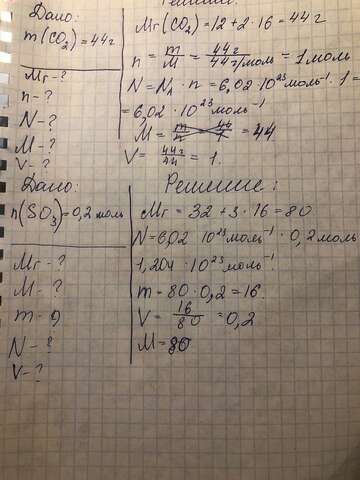 Дано:
m(CO₂)=44г
Mr-?
n-?
N-?
M-?
V-?
Решение:
Mr(CO₂)=12+2·16=44г
n=m/M=44г/44г/моль=1моль
N=Nₐ·n=6,02·10²³моль⁻¹·1=
=6,02·10²³моль⁻¹
M=m/n 44/1=44
V=44г/44=1.
Дано:
n(SO₃)=0,2моль
Mr-?
M-?
m-?
N-?
V-?
Решение:
Mr=32+3·16=80
N=6,02 10²³моль⁻¹·0,2моль
1,204·10²³моль⁻¹.
m=80·0,2=16.
V=16/80=0,2
M=80